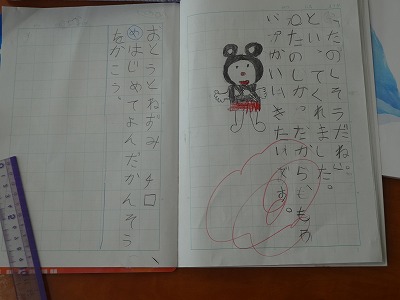 たのしそうだね。
といってくれました。
たのしかった だから もお
いっかいいきたいです。
おとうとねずみ チロ
㋱はじめてよんだかんそう
をかこう。